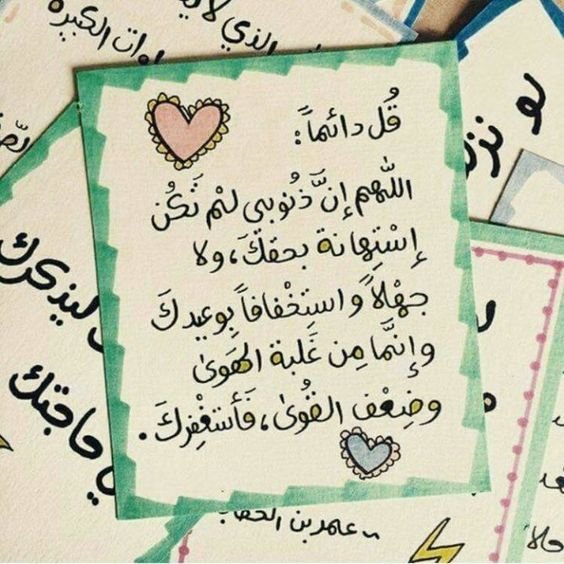 قُل دائماً:
اللهم إنَّ ذنوبي لم تَكُن
إستِهانة بحقكَ، ولا
جهْلاً واستِخْفافاً بوعيدكَ
وإنَّما مِن غَلبة الهَوىٰ
وضِعْف القُوىٰ، فَأستغْفِركَ.
الذي
الكبيرة
لو نزر
ليذكرك
حاجتك